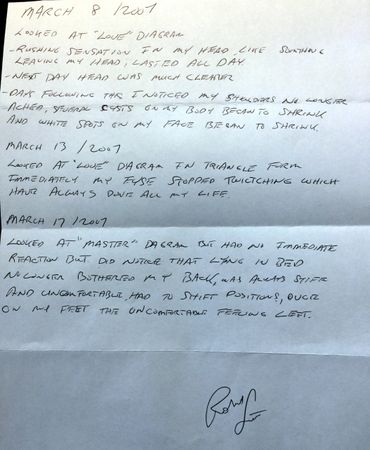 MARCH 8 /2007
LOOKED AT "LOVE" DIAGRAM
- RUSHING SENSATION IN MY HEAD, LIKE SOMTHING
LEAVING MY HEAD, LASTED ALL DAY
- NEXT DAY HEAD WAS MUCH CLEARER
- DAYS FOLLOWING THE I NOTICED MY SHOULDERS NO LONGER
ACHED, SEVERAL CYSTS ON MY BODY BEGAN TO SHRINK
AND WHITE SPOTS ON MY FACE BEGAN TO SHRINK
MARCH 13 /2007
LOOKED AT "LOVE" DIAGRAM IN TRIANGLE FORM
IMMEDIATELY MY EYES STOPPED TWICTCHING WHICH
HAVE ALWAYS DONE ALL MY LIFE.
MARCH 17 /2007
LOOKED AT "MASTER" DAGRAM BUT HAD NO IMMEDIATE
REACTION BUT DID NOTICE THAT LYING IN BED
NO LONGER BOTHERED MY BACK, WAS ALWAYS STIFF
AND UNCOMFORTABLE, HAD TO SHIFT POSITIONS, ONCE
ON MY FEET THE UNCOMFORTABLE FEELING LEFT.